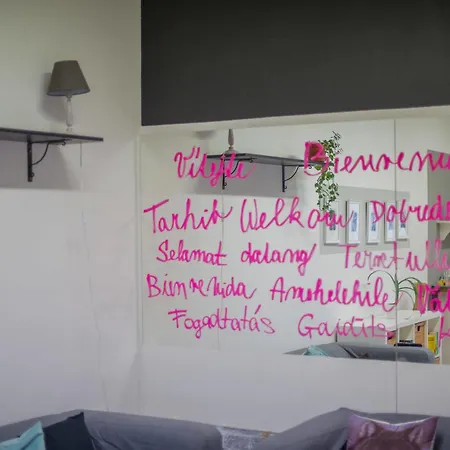 Vítejte Bienvenu
Tarhib Welkom Dobrode
Selamat datang Teretulle
Bienvenida Amohelehile
Fogadtatás Gaidīts